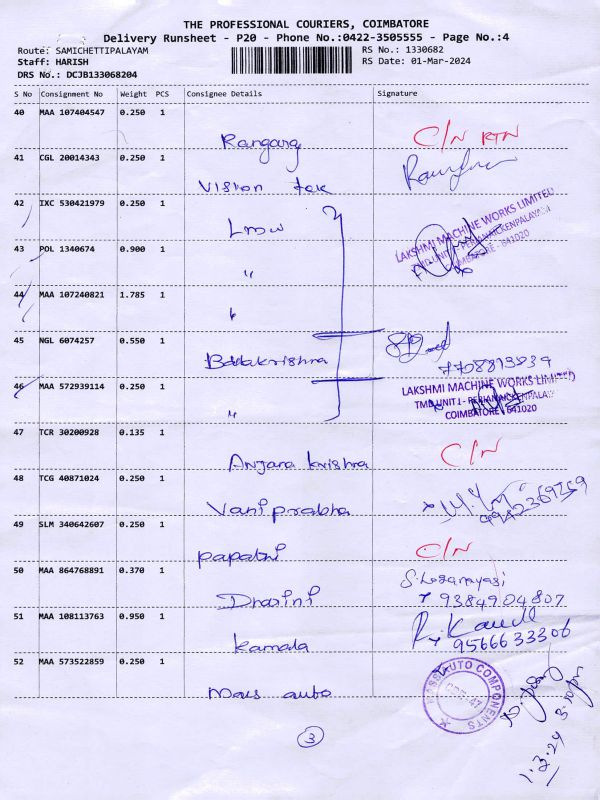 THE PROFESSIONAL COURIERS, COIMBATORE
Delivery Runsheet - P20 - Phone No.:0422-3505555 - Page No.:4
Route: SAMICHETTIPALAYAM RS No.: 1330682
Staff: HARISH RS Date: 01-Mar-2024
DRS No.: DCJB133068204
S No Consignment No Weight PCS Consignee Details Signature
40 MAA 107404547 0.250 1
Rangang C/N RTN
41 CGL 20014343 0.250 1
Vision tek
42 IXC 530421979 0.250 1
Lmw LAKSHMI MACHINE WORKS LIMITED
TMD.UNIT - PERIANAICKENPALAYAM
COIMBATORE - 641020
43 POL 1340674 0.900 1
"
44 MAA 107240821 1.785 1
"
45 NGL 6074257 0.550 1
Balakrishna 7708813839
46 MAA 572939114 0.250 1
" LAKSHMI MACHINE WORKS LIMITED
TMD.UNIT 1 - PERIANAICKENPALAYAM
COIMBATORE - 641020
47 TCR 30200928 0.135 1
Anjana krishna C/N
48 TCG 40871024 0.250 1
Vani prabha 9942369259
49 SLM 340642607 0.250 1
papathi C/N
50 MAA 864768891 0.370 1
Dharini S. Loganayagi
9384904807
51 MAA 108113763 0.950 1
kamala 9566633306
52 MAA 573522859 0.250 1
Mars auto AUTO COMPONENTS
1.3.24 3.10 pm
3